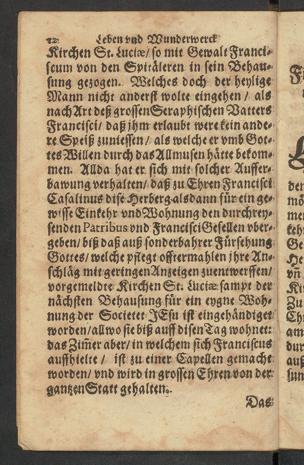 12 Leben vnd Wunderwerck
Kirchen St. Luciæ/ so mit Gewalt Franci-
scum von den Spitäleren in sein Behau-
sung gezogen. Welches doch der heylige
Mann nicht anderst wolte eingehen/ als
nach Art deß grossen Seraphischen Vatters
Francisci/ daß jhm erlaubt were kein ande-
re Speiß zuniessen/ als welche er vmb Got-
tes Willen durch das Allmusen hätte bekom-
men. Allda hat er sich mit solcher Auffer-
bawung verhalten/ daß zu Ehren Francisci
Casalinus dise Herberg alsdann für ein ge-
wisse Einkehr vnd Wohnung den durchrey-
senden Patribus vnd Francisci Gesellen vber-
geben/ biß daß auß sonderbahrer Fürsehung
Gottes/ welche pflegt offtermahlen jhre An-
schläg mit geringen Anzeigen zuentwerffen/
vorgemeldte Kirchen St. Luciæ sampt der
nächsten Behausung für ein eygne Woh-
nung der Societet JEsu ist eingehändiget
worden/ allwo sie biß auff disen Tag wohnet:
das Zim̄er aber/ in welchem sich Franciscus
auffhielte/ ist zu einer Capellen gemacht
worden/ vnd wird in grossen Ehren von der
gantzen Statt gehalten.
Das